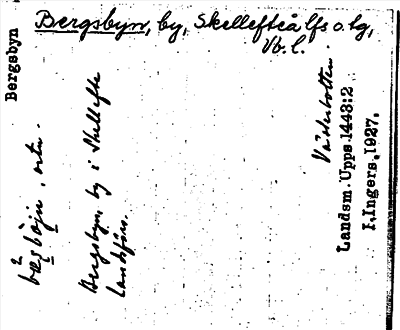 Bergsbyn
Bergsbyn, by, Skellefteå lfs o. tg,
Vb. l.
Bergsbyn, by i Skellefte
landsförs.
Västerbotten.
Landsm. Upps. 1443:2
I. Ingers. 1927.